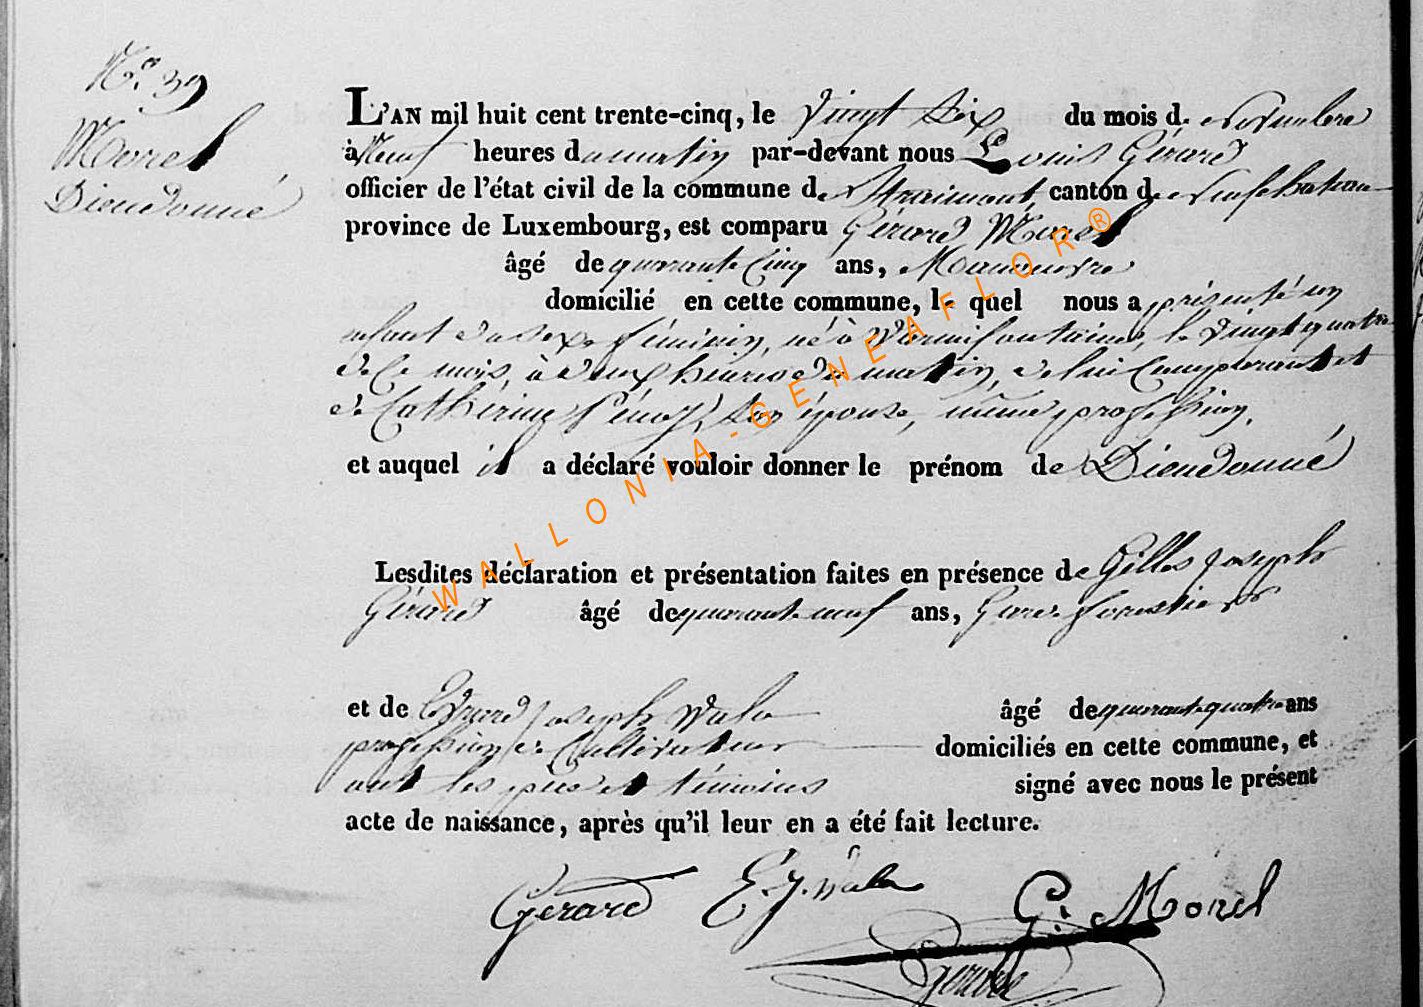 N.° 39
Morel
Dieudonné
L'AN mil huit cent trente-cinq, le vingt six du mois de novembre
à neuf heures du matin par-devant nous Louis Gérard
officier de l'état civil de la commune de Straimont canton de neufchateau
province de Luxembourg, est comparu Gérard Morel
âgé de quarante cinq ans, Manoeuvre
domicilié en cette commune, le quel nous a présenté un
enfant du sexe féminin, né à Warmifontaine, le vingt quatre
de ce mois, à deux heures du matin, de lui Comparant et
de Catherine son épouse, même profession.
et auquel il a déclaré vouloir donner le prénom de Dieudonné
Lesdites déclaration et présentation faites en présence de Gilles Joseph
Gérard âgé de quarante neuf ans, Garde forestier
et de Evrard Joseph Wala âgé de quarante quatre ans
profession de Cultivateur domiciliés en cette commune, et
ont les père et témoins signé avec nous le présent
acte de naissance, après qu'il leur en a été fait lecture.
Gérard E. J. Wala G. Morel
Gérard
WALLONIA-GENEAFLOR®